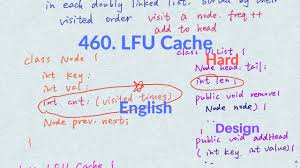 in each doubly linked list, sorted by their
visited order visit a node. freq ++
add to head
460. LFU Cache
Hard
class Node {
int key;
int val;
int cnt; (visited times)
Node prev, next;
}
English
class DLList {
Node head, tail;
int len;
public void remove(
Node node) }
Design
public void addHead
(int key, int value) {
class LFU Cache {